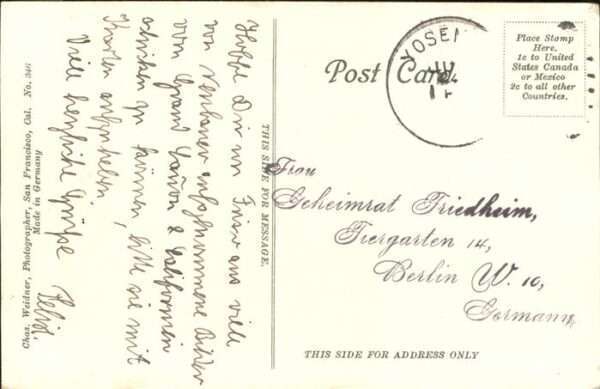 Hoffe Dir im Januar aus
von selbst aufgenommene Bilder
vom Grand Cañon & Californien
schicken zu können, bitte sie mit
Karten aufzuheben.
Viele herzliche Grüße
THIS SIDE FOR MESSAGE.
Chas. Weidner, Photographer, San Francisco, Cal. No. 346
Made in Germany
Post Card.
YOSEM
Place Stamp
Here.
1c to United
States Canada
or Mexico
2c to all other
Countries.
Frau
Geheimrat Friedheim,
Tiergarten 14,
Berlin W. 10,
Germany
THIS SIDE FOR ADDRESS ONLY